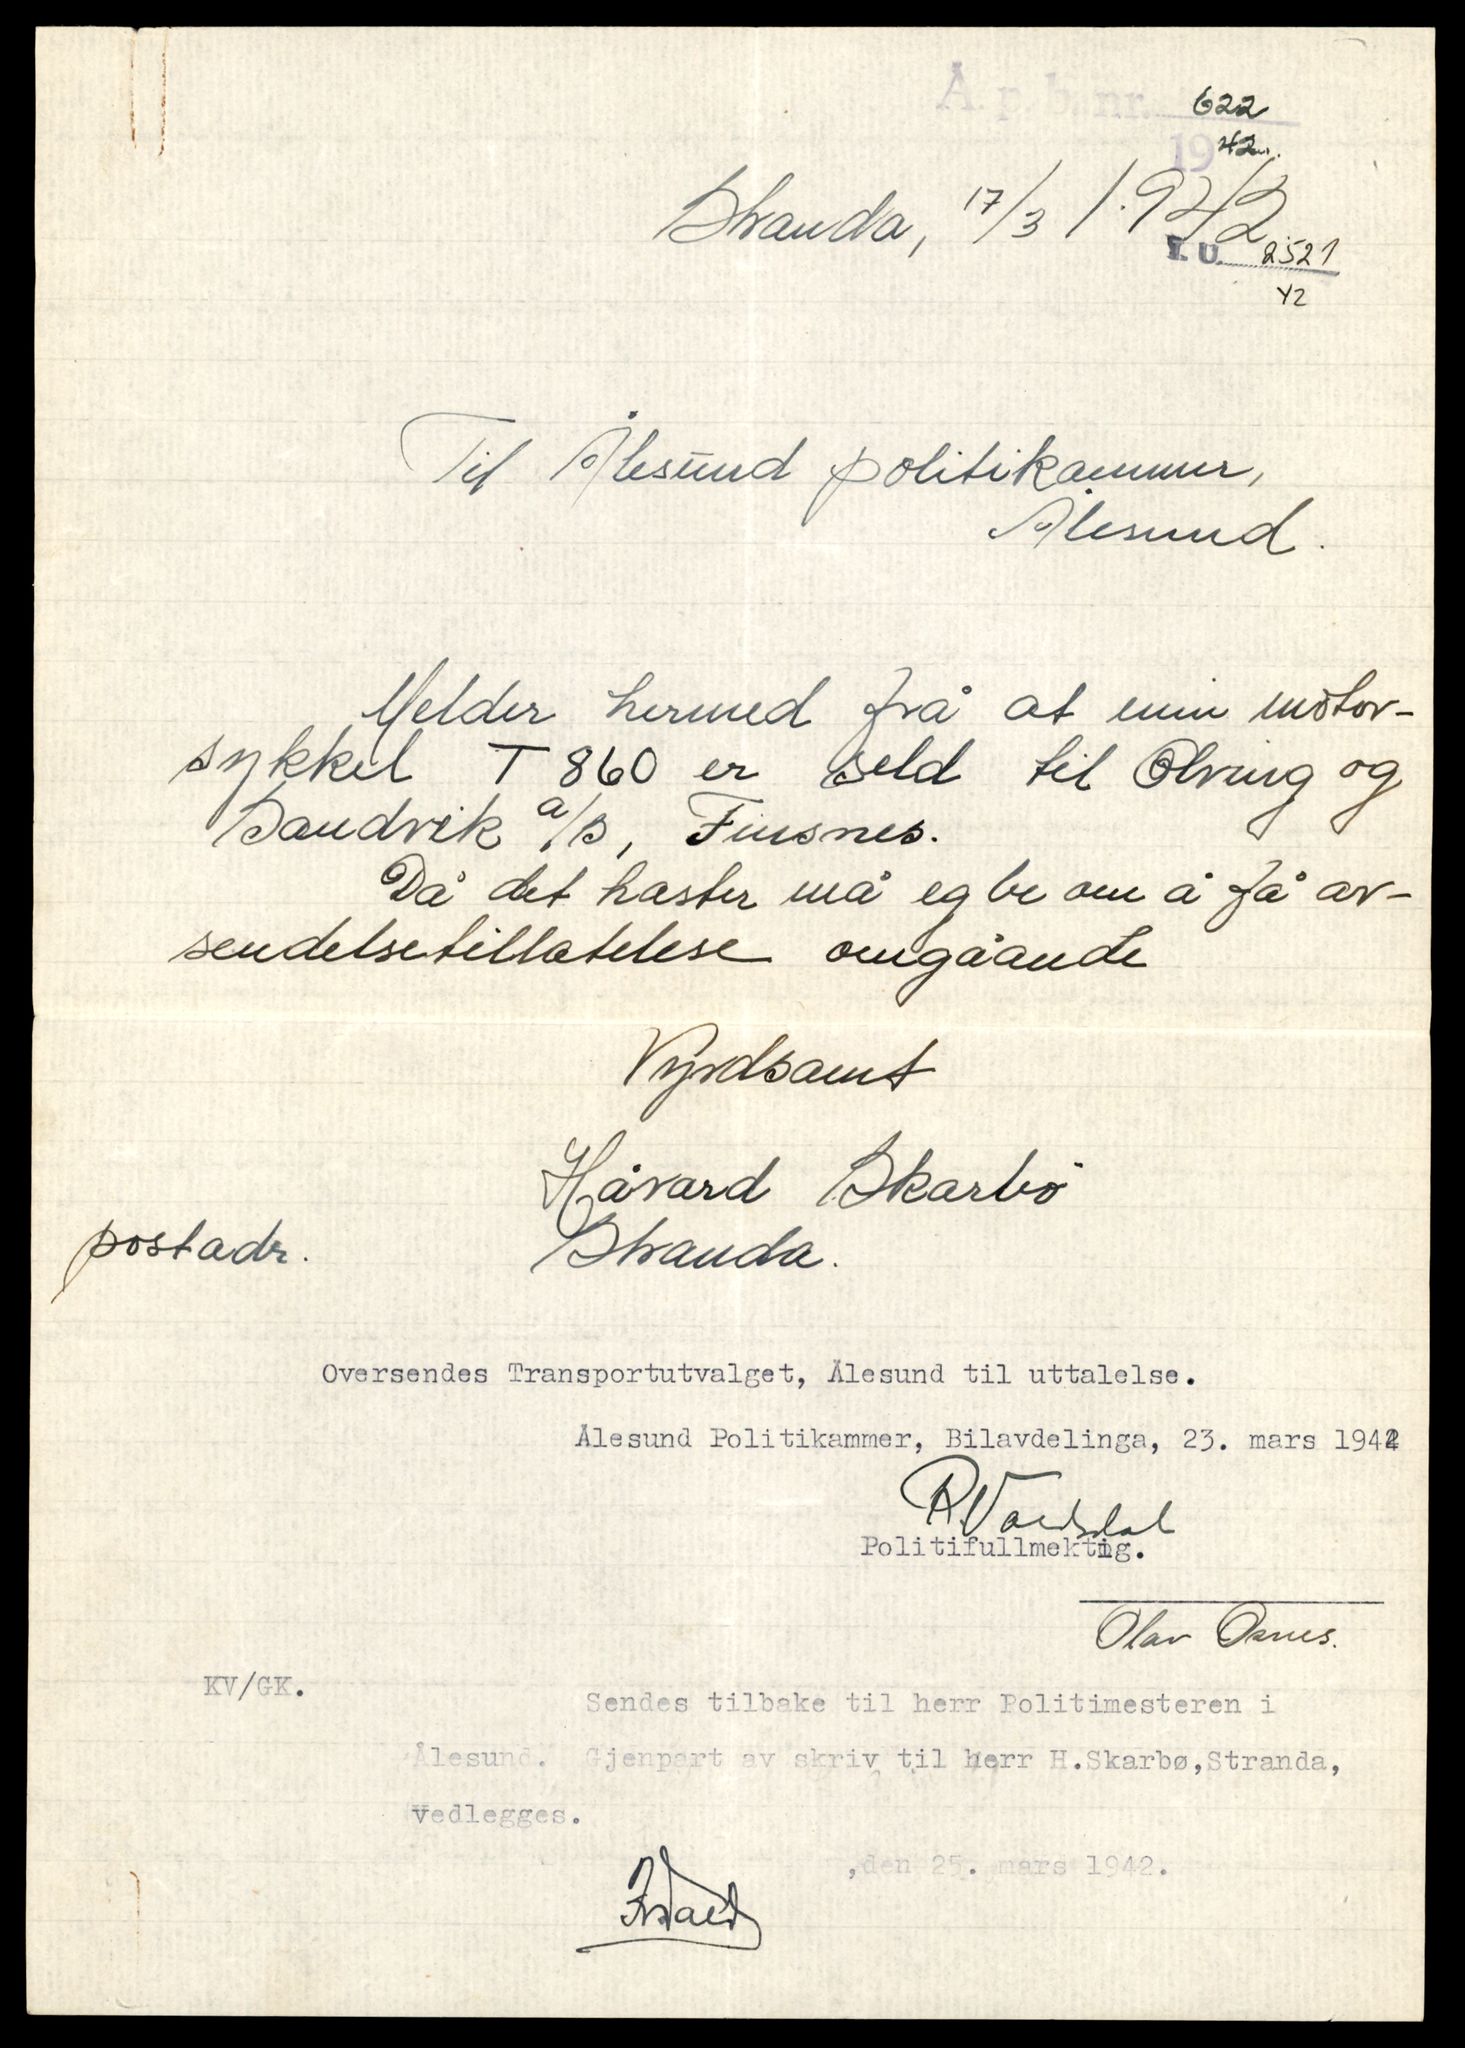 Å. p. b. nr. 622
1942
Stranda, 17/3 1942
T. U. 2521
42
Til Ålesund politikammer,
Ålesund.
Melder hermed frå at min motor-
sykkel T 860 er seld til Olving og
Sandvik a/s, Finsnes.
Då det haster må eg be om å få av-
sendelsetillatelse omgåande
Vyrdsamt
Håvard Skarbø
postadr. Stranda.
Oversendes Transportutvalget, Ålesund til uttalelse.
Ålesund Politikammer, Bilavdelinga, 23. mars 1942
Politifullmektig.
Olav Osnes.
KV/GK.
Sendes tilbake til herr Politimesteren i
Ålesund. Gjenpart av skriv til herr H.Skarbø,Stranda,
Vedlegges.
,den 25. mars 1942.